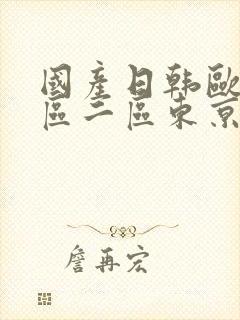 國產日韓歐
區二區東京
詹再宏